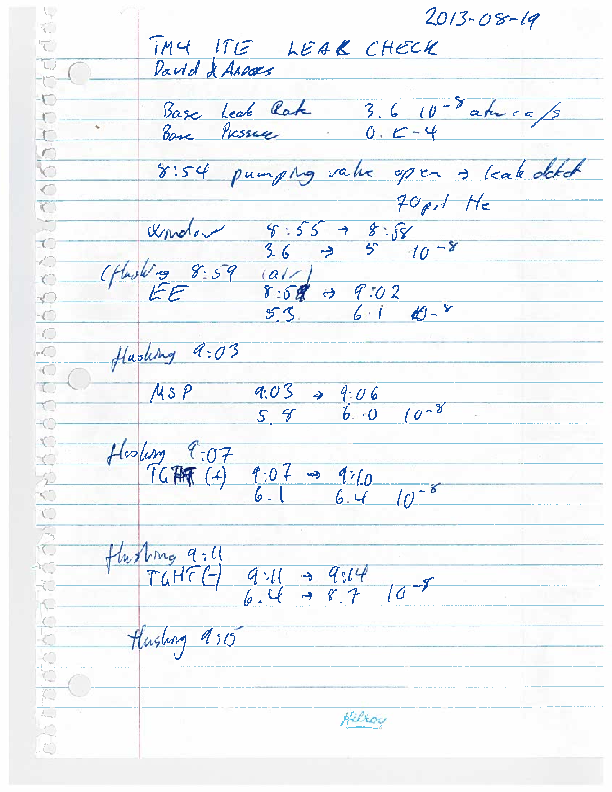 2013-08-19
TM4 ITE LEAK CHECK
David & Anders
Base Leak Rate 3.6 10-8 atm cc/s
Base Pressure 0. E-4
8:54 pumping valve open → leak detect
70 psi He
window 8:55 → 8:58
3.6 → 5 10-8
(flushing 8:59 (air)
EE 8:59 → 9:02
5.3 6.1 10-8
flushing 9:03
MSP 9:03 → 9:06
5.8 6.0 10-8
flushing 9:07
TGHT (+) 9:07 → 9:10
6.1 6.4 10-8
flushing 9:11
TGHT (-) 9:11 → 9:14
6.4 → 8.7 10-8
flushing 9:15
Hilroy